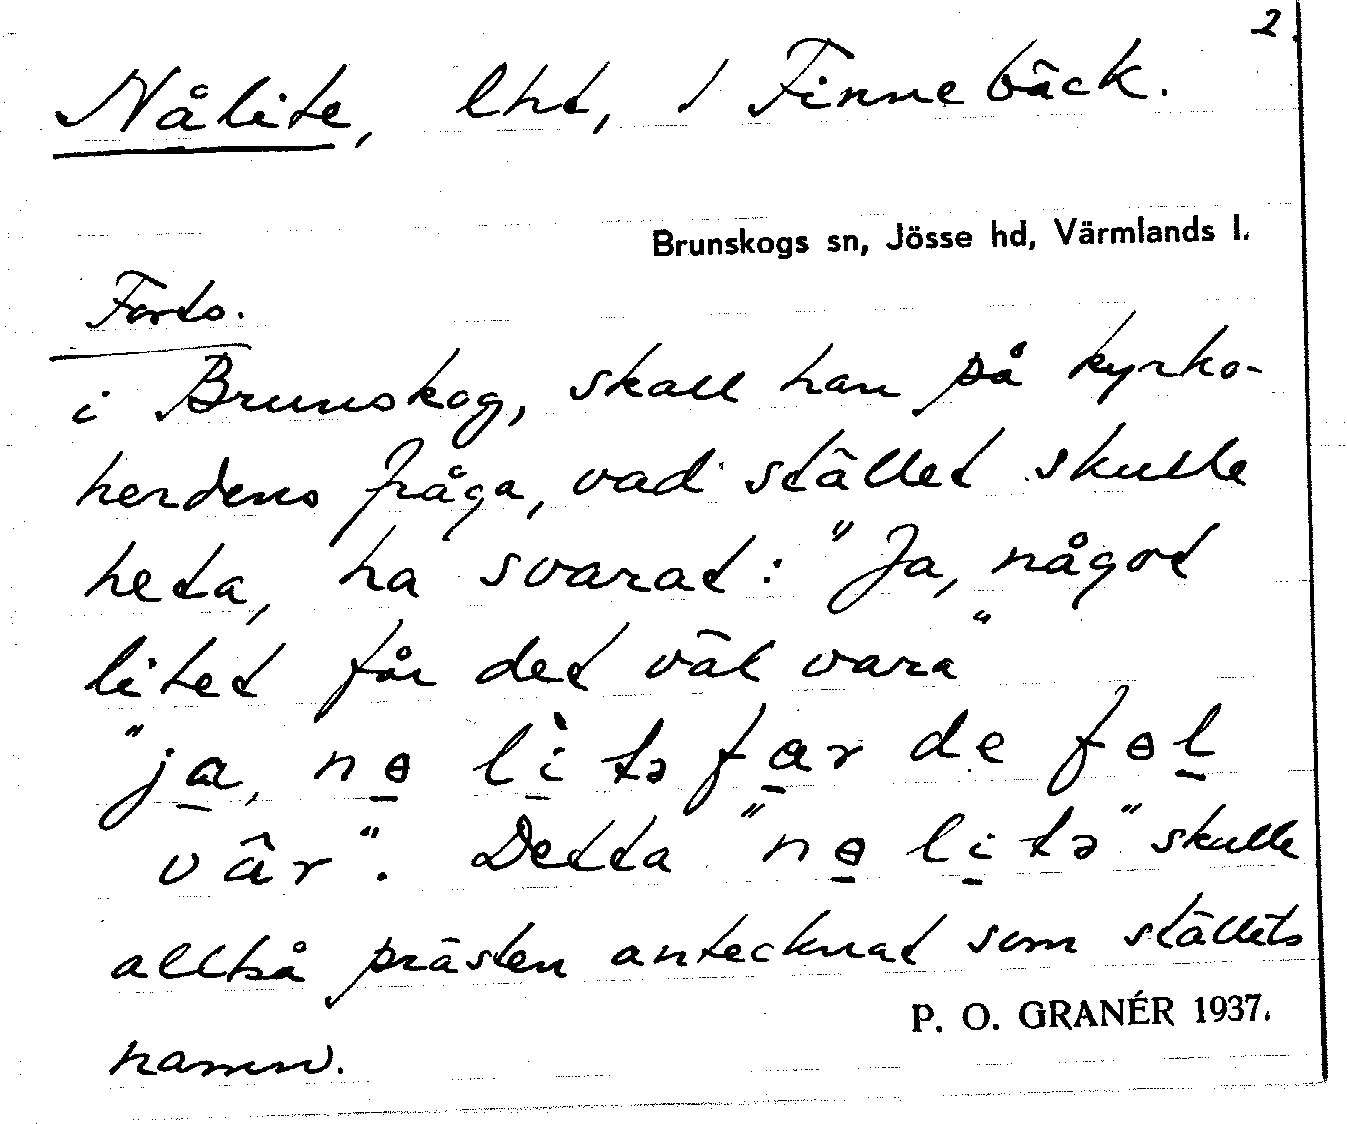 2.
Nålite, lht, / Finnebäck.
Brunskogs sn, Jösse hd, Värmlands l.
Forts.
i Brunskog, skall han på kyrko-
herdens fråga, vad stället skulle
heta, ha svarat: "Ja, något
litet får det väl vara"
"ja, nɵ lìtə far de fɵl
vâr". Detta "nɵ litə" skulle
alltså prästen antecknat som ställets
namn.
P. O. GRANÉR 1937.